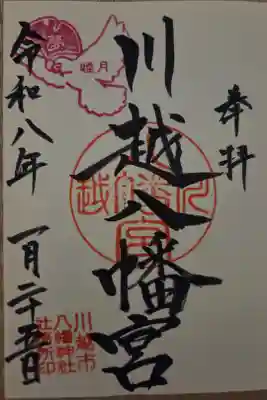 奉拝
川越八幡宮
令和八年 一月二十五日
睦月
川越市
八幡神社
社務所印